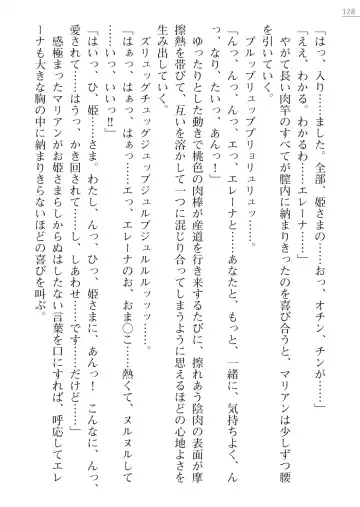 128
「はっ、入り……ました。全部、姫さまの……おっ、オチン、チンが……」
「ええ、わかる。わかるわ……エレーナ……」
やがて長い肉竿のすべてが膣内に納まりきったのを喜び合うと、マリアンは少しずつ腰
を引いていく。
プルルップリュッププリョリュリュッ……。
「んっ、んっ、んっ、エっ、エレーナと……あなたと、もっと、一緒に、気持ちよく、ん
っ、なり、たいっ、あんっ！」
ゆったりとした動きで桃色の肉棒が産道を行き来するたびに、擦れあう陰肉の表面が摩
擦熱を帯びて、互いを溶かして一つに混じり合ってしまうように思えるほどの心地よさを
生み出していく。
ズリュッグチュッグジュップジュルプジュルルルッッッ……。
「はぁっ、はぁっ、はぁっ……エっ、エレーナのお、おま◯こ……熱くて、ヌルヌルして
……いっ、いいっ‼」
「はいっ、ひ、姫……さま。わたし、んっ、ひっ、姫さまに、あんっ！　こんなに、んっ、
愛されて……はうっ、かき回されて……し、しあわせ……です……だけど……」
感極まったマリアンがお姫さまらしからぬはしたない言葉を口にすれば、呼応してエレ
ーナも大きな胸の中に納まりきらないほどの喜びを叫ぶ。